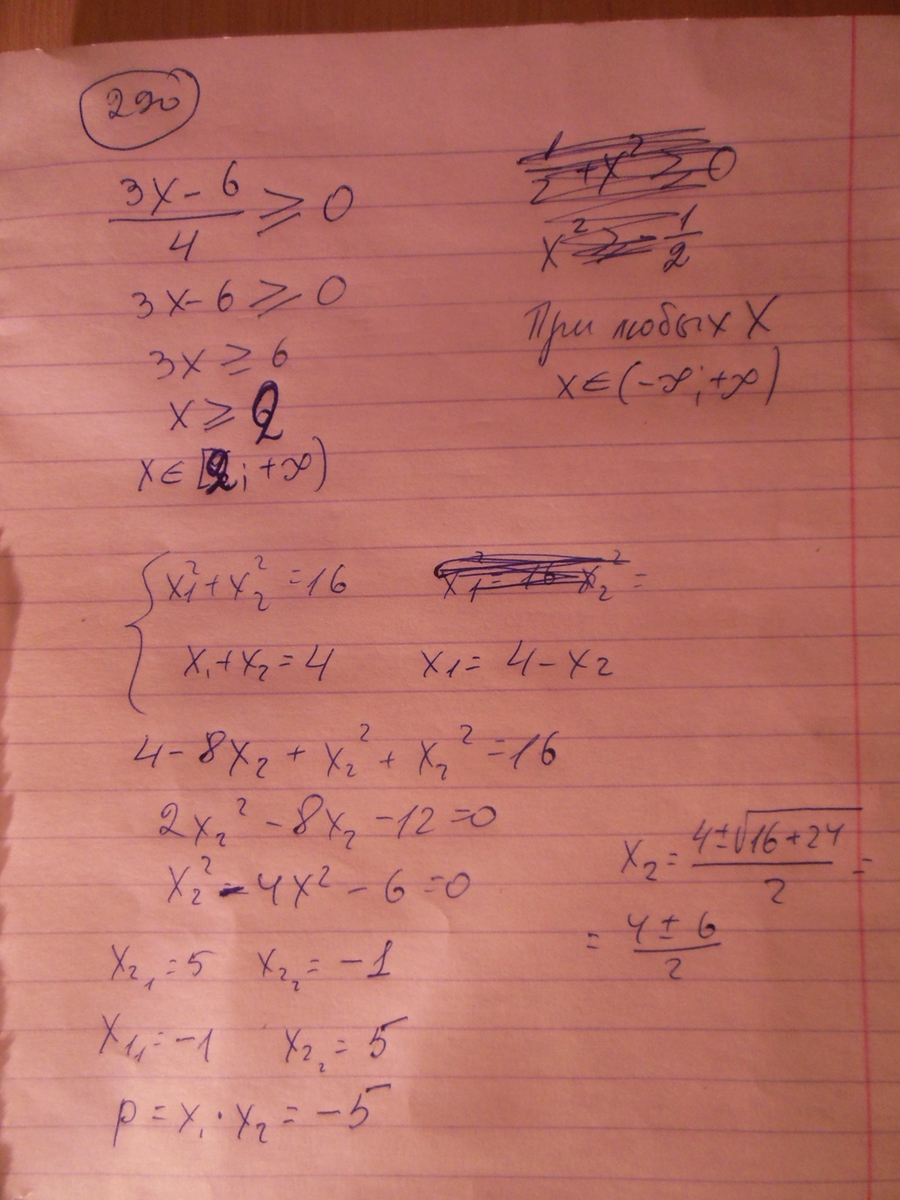 290
3x - 6 / 4 ≥ 0
3x - 6 ≥ 0
3x ≥ 6
x ≥ 2
x ∈ [2; +∞)
1/2 + x² ≥ 0
x² ≥ - 1/2
При любых X
x ∈ (-∞; +∞)
{ x₁² + x₂² = 16
x₁ + x₂ = 4
x₁² = 16 - x₂² =
x₁ = 4 - x₂
4 - 8x₂ + x₂² + x₂² = 16
2x₂² - 8x₂ - 12 = 0
x₂² - 4x² - 6 = 0
x₂ = 4 ± √16 + 24 / 2 =
= 4 ± 6 / 2
x₂₁ = 5 x₂₂ = -1
x₁₁ = -1 x₂₂ = 5
p = x₁ · x₂ = -5